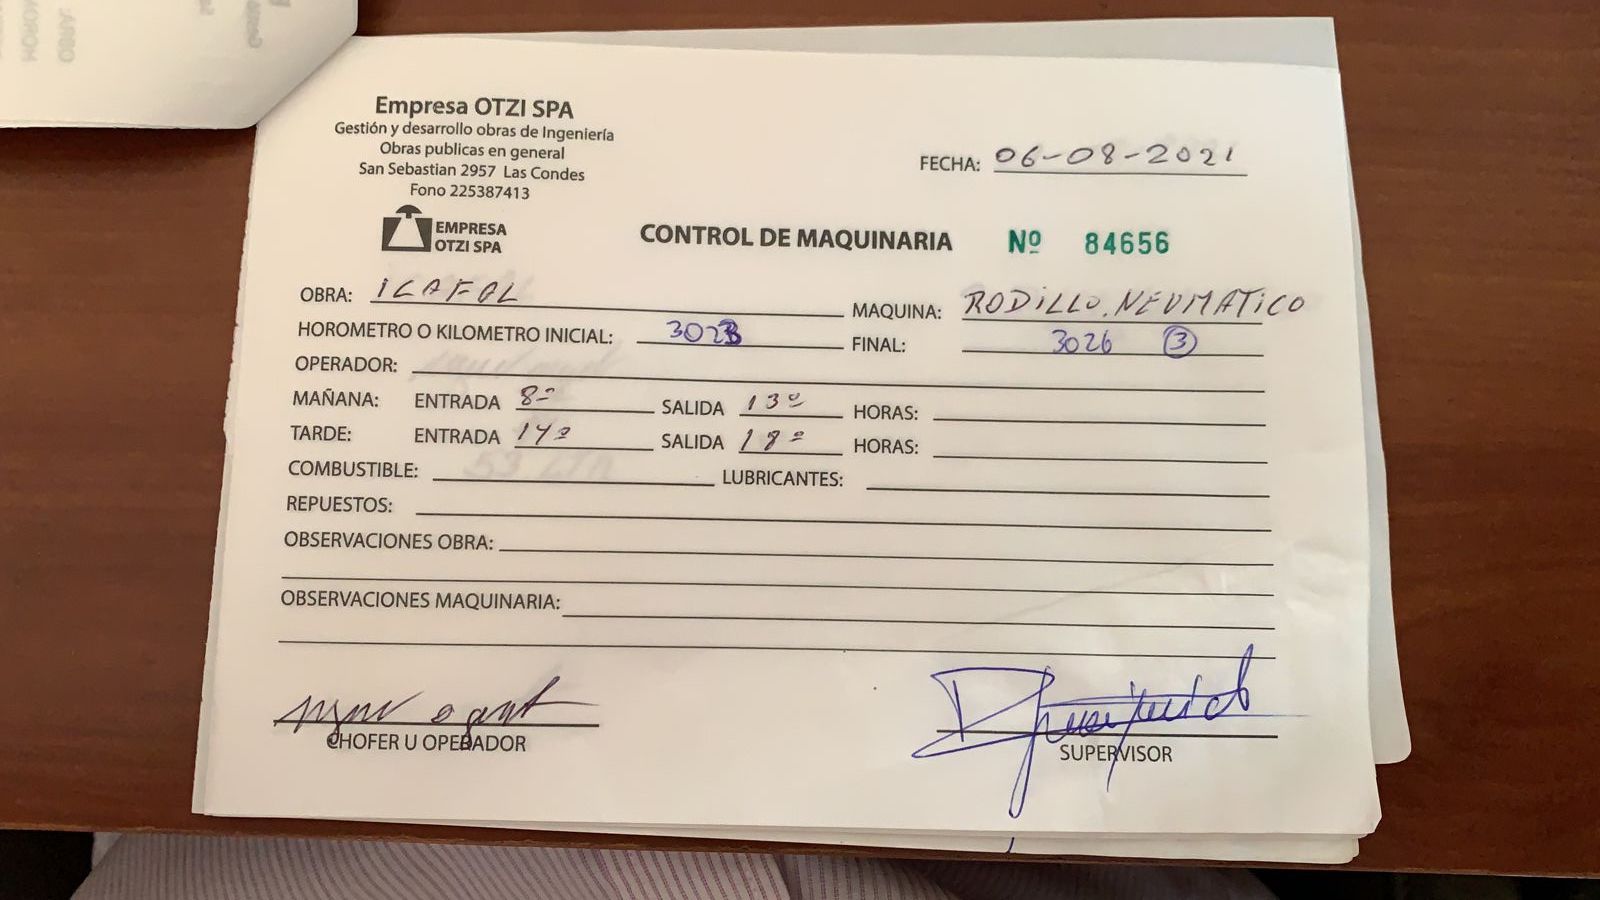 Empresa OTZI SPA
Gestión y desarrollo obras de Ingeniería
Obras publicas en general
San Sebastian 2957 Las Condes
Fono 225387413
EMPRESA
OTZI SPA
FECHA: 06-08-2021
CONTROL DE MAQUINARIA Nº 84656
OBRA: ICAFAL MAQUINA: RODILLO. NEUMATICO
HOROMETRO O KILOMETRO INICIAL: 3023 FINAL: 3026 3
OPERADOR:
MAÑANA: ENTRADA 8- SALIDA 13º HORAS:
TARDE: ENTRADA 14º SALIDA 18º HORAS:
COMBUSTIBLE: LUBRICANTES:
REPUESTOS:
OBSERVACIONES OBRA:
OBSERVACIONES MAQUINARIA:
CHOFER U OPERADOR
SUPERVISOR